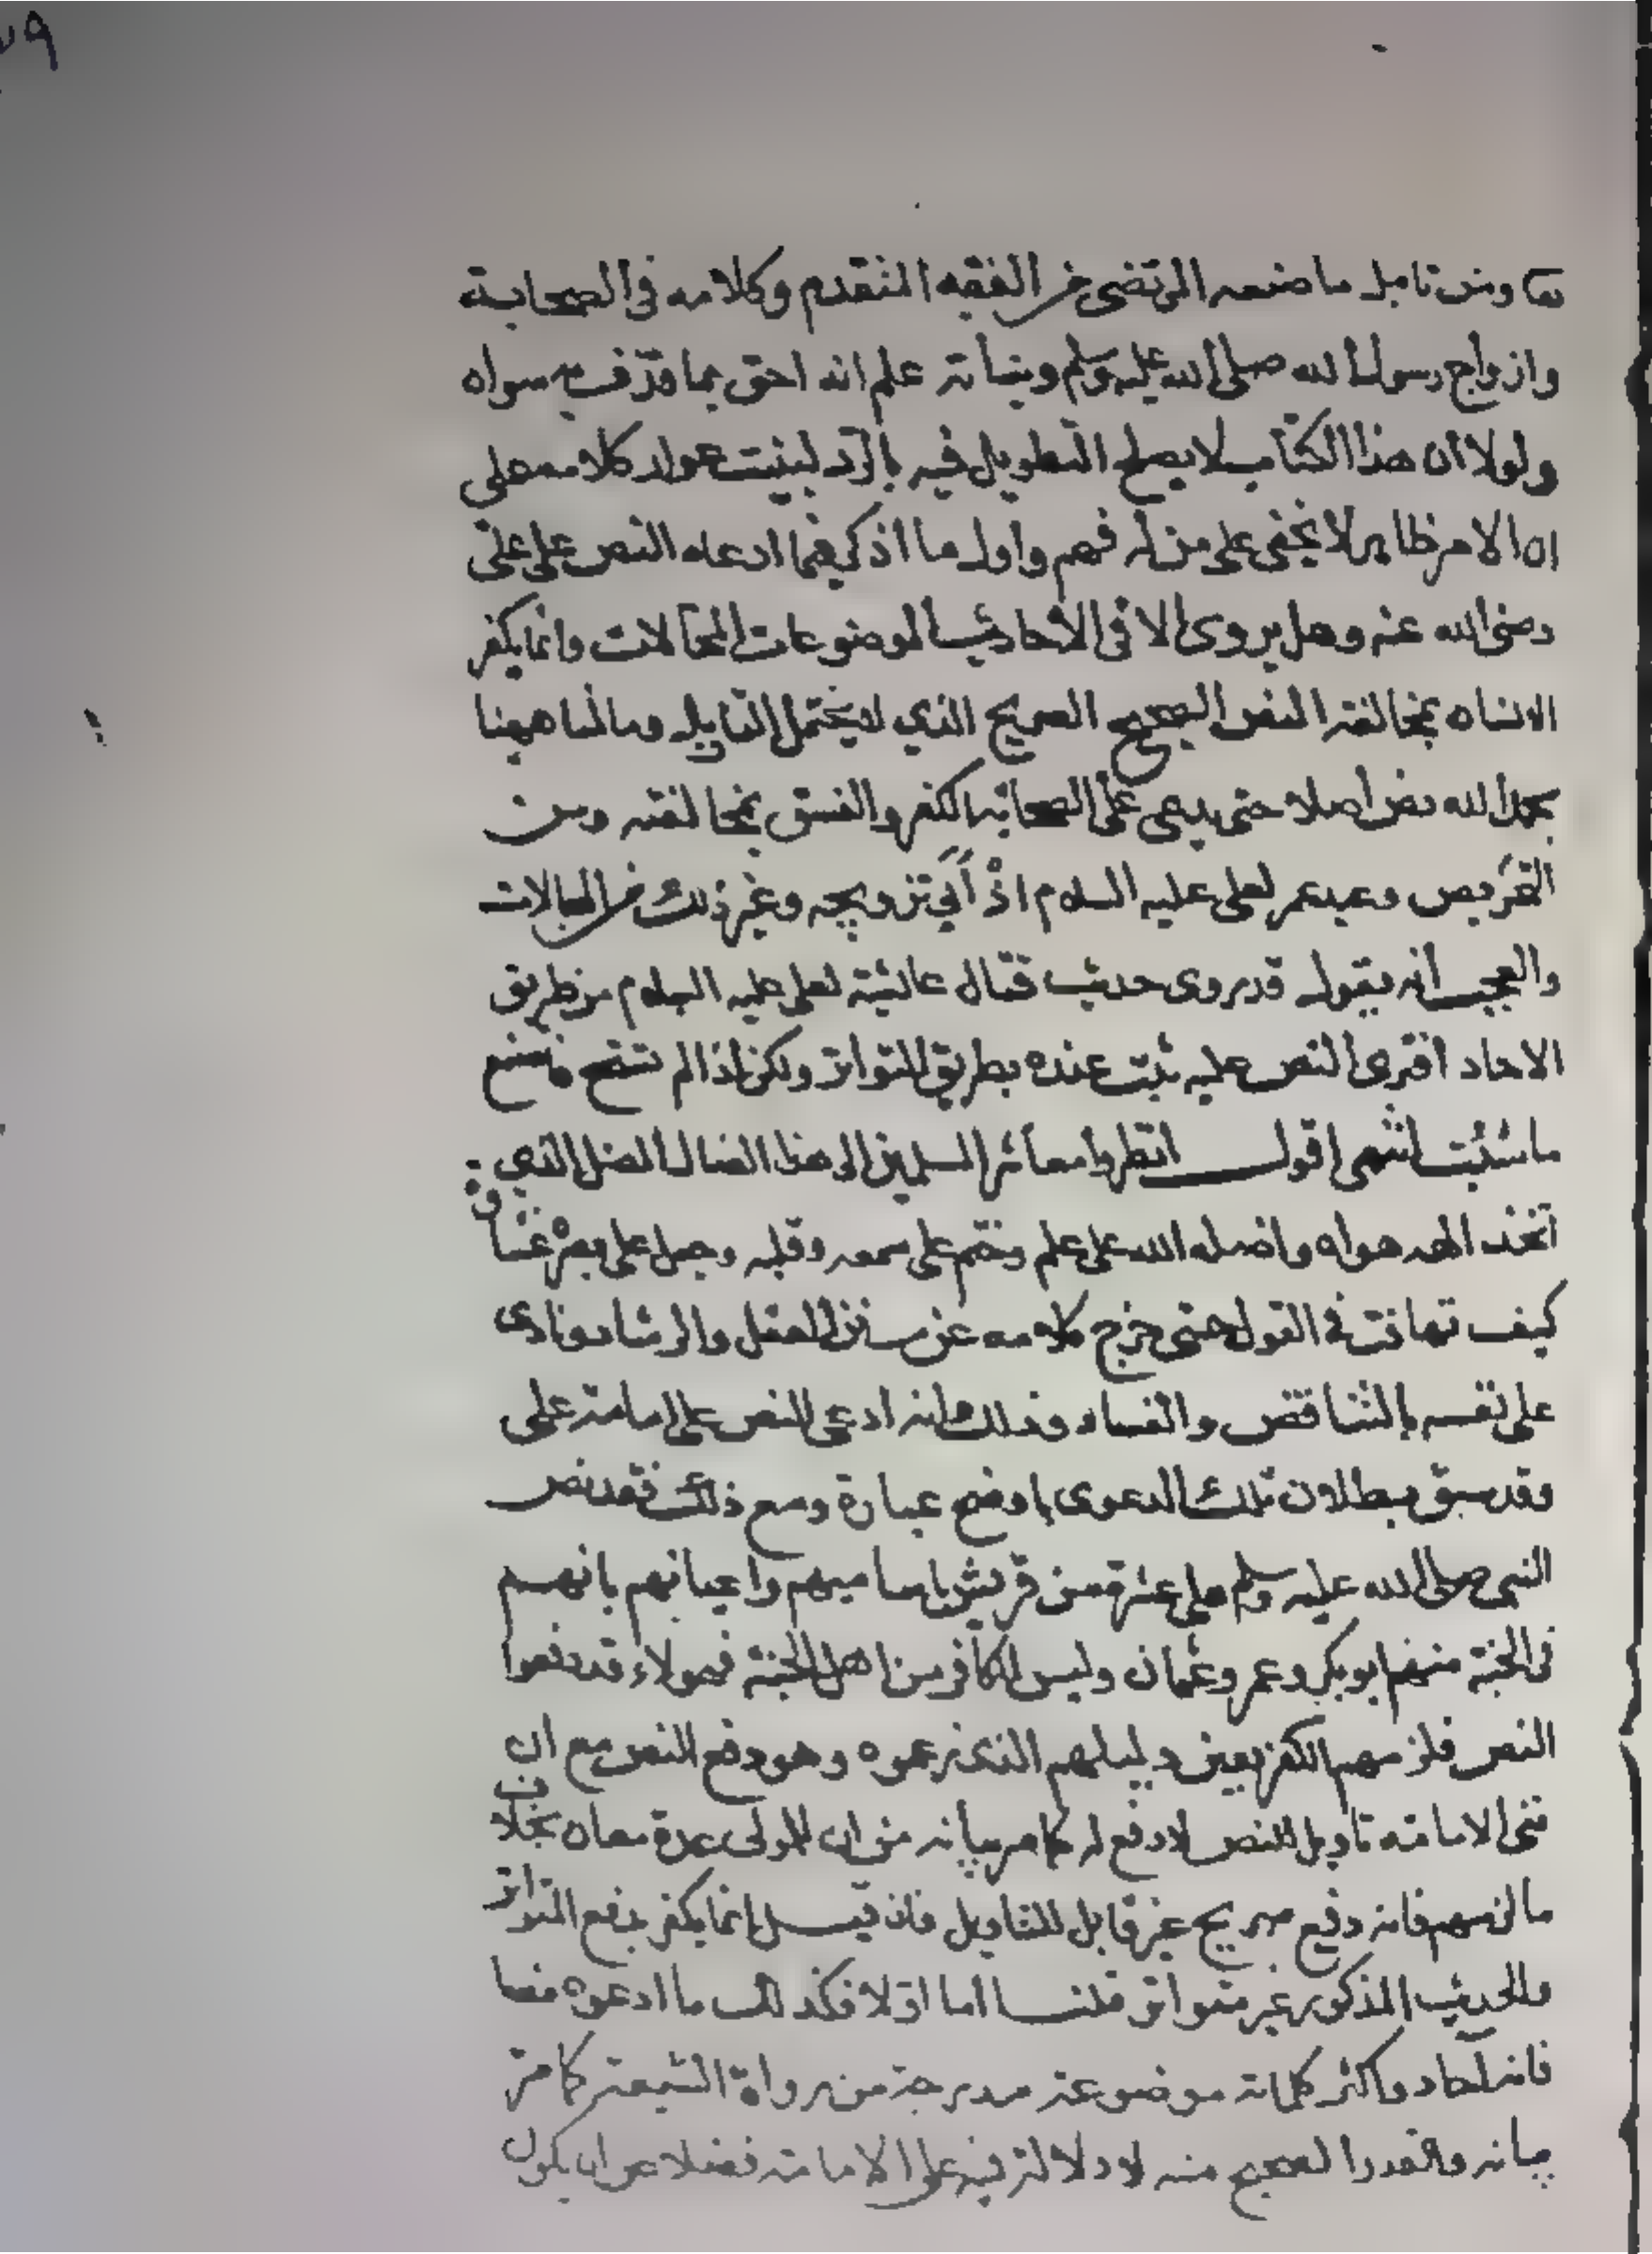 ومن تامل ما صنعه المرتضى من الفقه المتقدم وكلامه في الصحابة
وازواج رسول الله صلى الله عليه وسلم وبناته علم انه احق بما قذف به سواه
ولولا ان هذا الكتاب لا يصلح التطويل فيه بالرد لبينت عوار كلامه على
ان الامر ظاهر لا يخفى على من له فهم واول ما اذكر فيما ادعاه النص على علي
رضي الله عنه وهل يروى الا في الاحاديث الموضوعات المحالات وانما يكفر
الانسان بمخالفته النص الصحيح الصريح الذي لا يحتمل التاويل وما لنا ههنا
بحمد الله نص اصلا حتى يدعي على الصحابة الكفر والفسق بمخالفته ومن
وعيد عمر لعلي عليه السلام اذْ أَبَي تزويجه وغير ذلك من المحالات
والعجب انه يقول قد روى حديث قتال عائشة لعلي عليه السلام من طريق
الاحاد افترى النص عليه ثبت عنده بطريق التواتر ولكن اذا لم تستح فاصنع
ما شئت انتهى اقول انظروا معاشر المسلمين الى هذا الضال المضل الذي
اتخذ الهه هواه واضله الله على علم وختم على سمعه وقلبه وجعل على بصره غشاوة
كيف تهافت في القول حتى خرج كلامه عن سنن العقل والرشاد ونادى
على نفسه بالتناقض والفساد وذلك انه ادعى النص على امامة علي
وقد سبق بطلان تلك الدعوى باوضح عبارة ومع ذلك فقد نص
النبي صلى الله عليه وسلم على عشرة من قريش باساميهم واعيانهم بانهم
في الجنة منهم ابو بكر وعمر وعثمان وليس الكافر من اهل الجنة فهولاء قد دفعوا
النص فلزمهم الكفر بعين دليلهم الذي زعموه وهو دفع النص مع ان
نفى الامامة تاويل للنص لا دفع له كما مر بيانه من ان للمولى عدة معان بخلاف
ما لزمهم فانه دفع صريح غير قابل للتاويل فان قيل انما يكفر بدفع المتواتر
والحديث المذكور غير متواتر قلنا اما اوّلا فكذلك ما ادعوه نصا
فانه آحاد واكثر كلماته موضوعة مدرجة من رواة الشيعة كما مرّ
بيانه والقدر الصحيح منه لا دلالة فيه على الامامة فضلا عن ان يكون